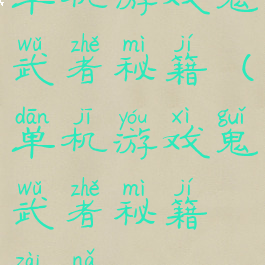 单机游戏鬼
wǔ zhě mì jí
武者秘籍（
dān jī yóu xì guǐ
单机游戏鬼
wǔ zhě mì jí
武者秘籍
zài nǎ